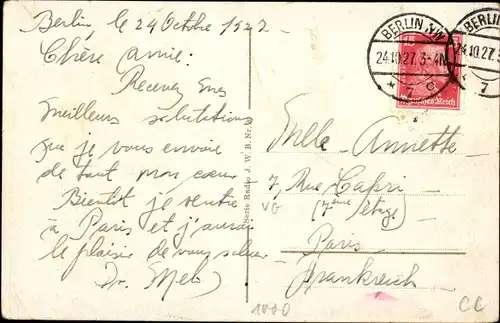 Berlin, le 24 Octobre 1927.
Chère amie:
Recevez mes
meilleurs salutations
que je vous envoie
de tout mon cœur
Bientôt je rentre
à Paris et j'aurai
le plaisir de vous saluer
Dr.
Serie Rades J. W. B. Nr.
BERLIN NW
24.10.27. 3-4N.
* 7 c
BERLIN
24.10.27. 3
7
Deutsches Reich
Mlle. Annette
7, Rue Capri
(7ème étage)
Paris
Frankreich
VG
1000
CC